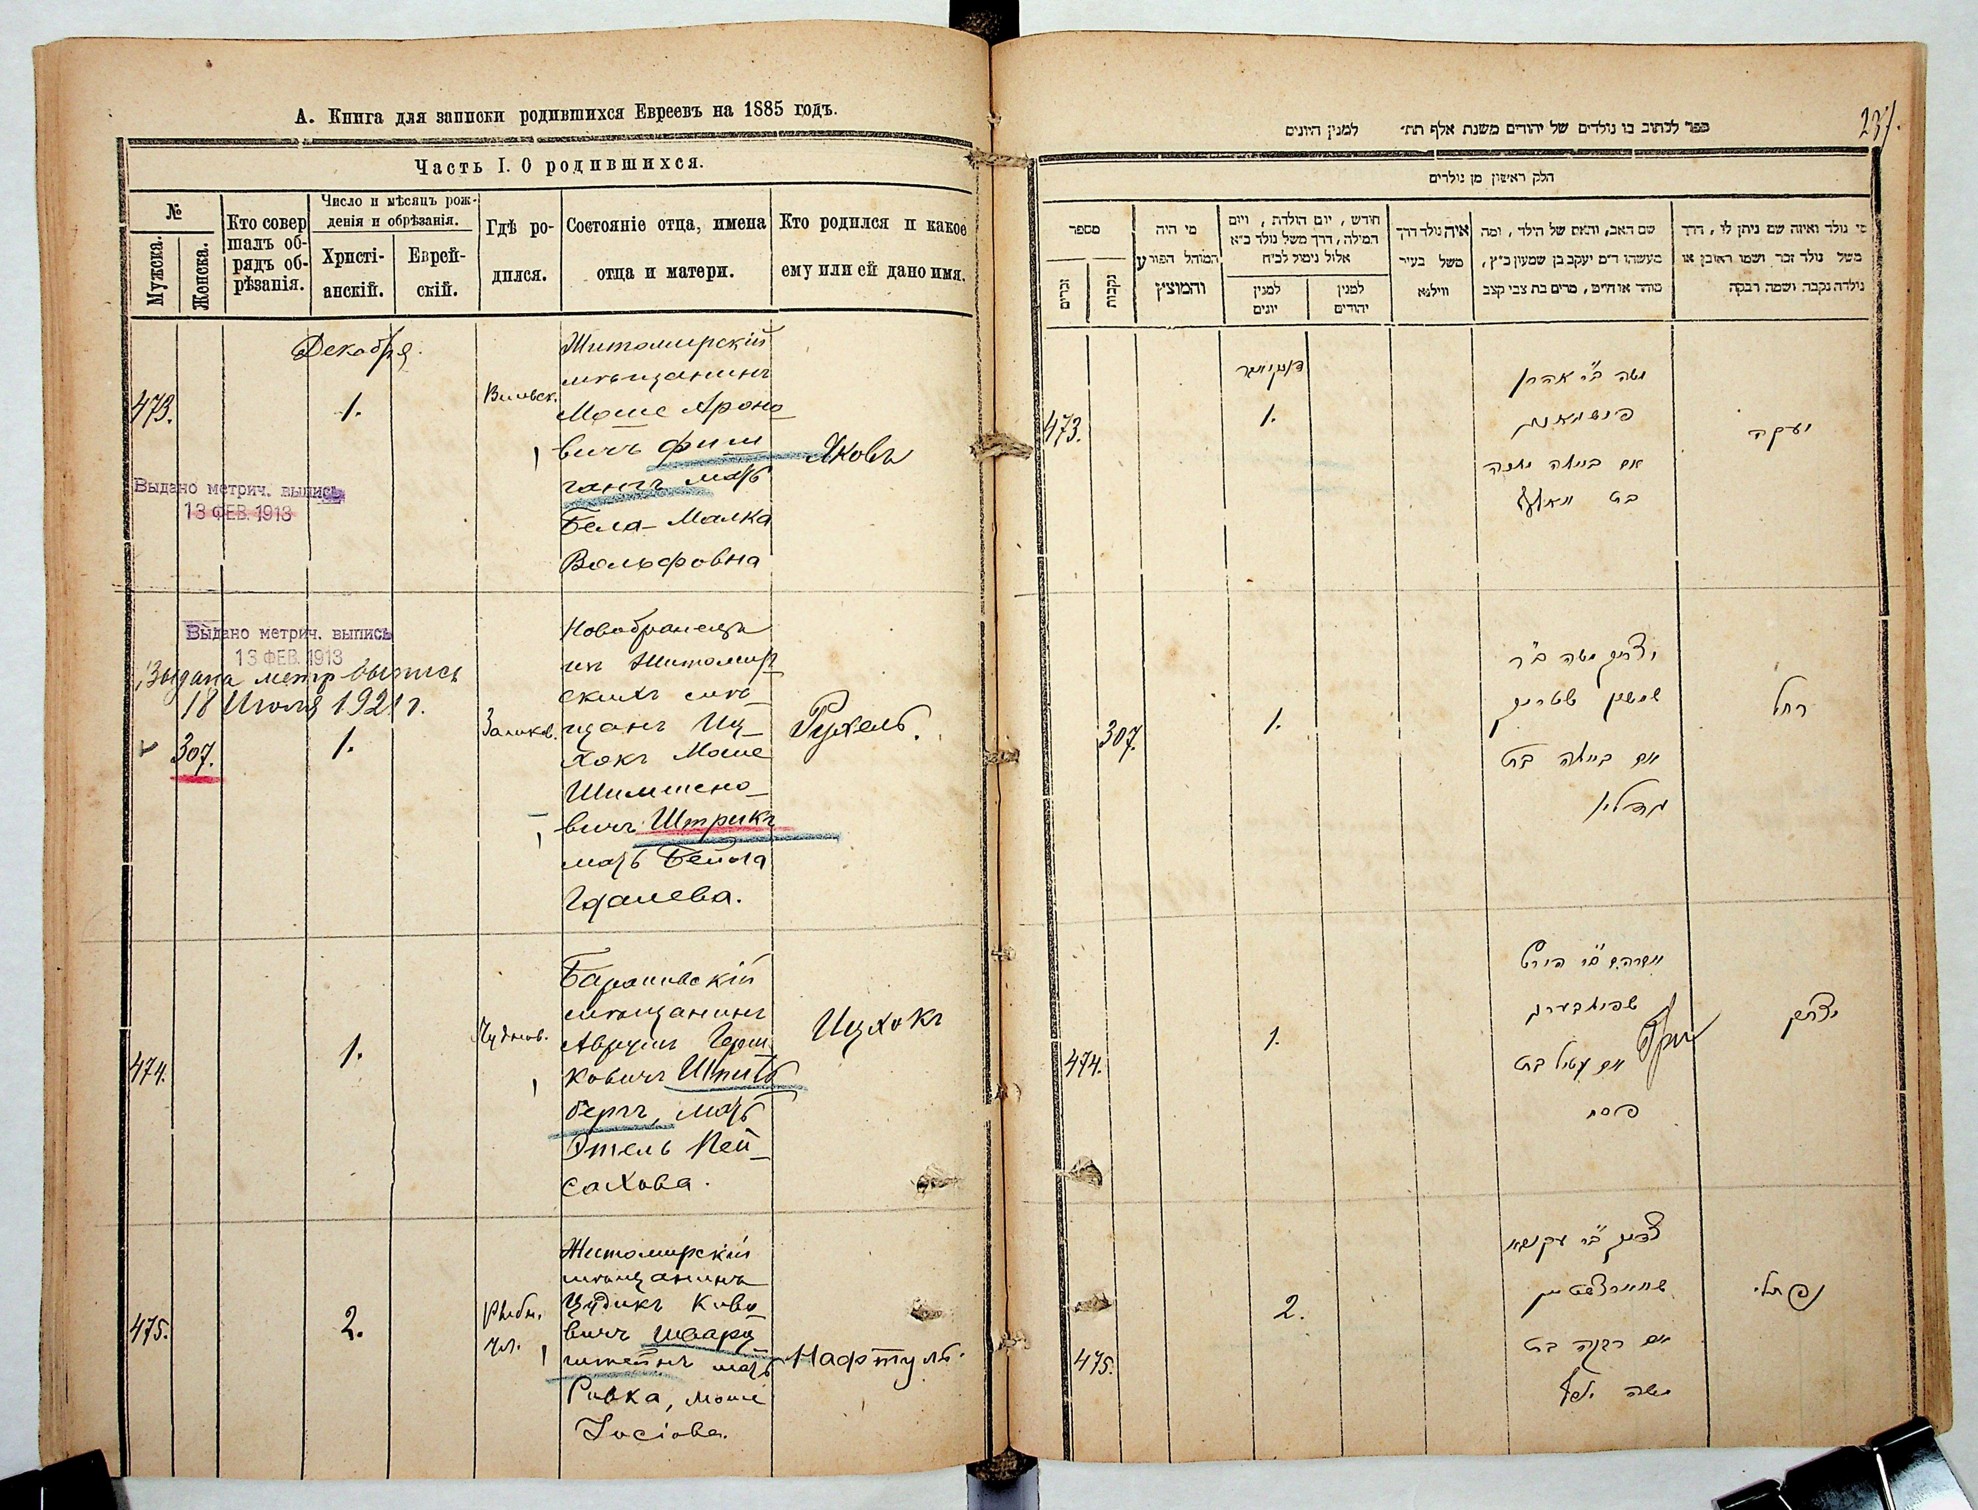 А. Книга для записки родившихся Евреевъ на 1885 годъ.
Часть I. О родившихся.
№
Мужска.
Женска.
Кто совер
шалъ об-
рядъ об-
рѣзанія.
Число и мѣсяцъ рож-
денія и обрѣзанія.
Христі-
анскій.
Еврей-
скій.
Гдѣ ро-
дился.
Состояніе отца, имена
отца и матери.
Кто родился и какое
ему или ей дано имя.
Декабря.
473.
1.
Вильск.
Житомирскій
мѣщанинъ
МошеАроно
вичъ Фиш
манъ мать
Бела-Малка
Вольфовна
Яковъ
Выдано метрич. выпись
13 ФЕВ. 1913
Выдано метрич. выпись
13 ФЕВ. 1913
Выдана метр выпись
18 Июля 1921 г.
307.
1.
Новобранецъ
изъ Житомир
скихъ мѣ
щанъ Иц
хокъ Моше
Шимшено
вичъ Штрикъ
мать Бейла
Гдалева.
Рухель.
474.
1.
Чуднов.
Барашевскій
мѣщанинъ
Аврумъ Герш
ковичъ Шпиль
бергъ, мать
Этель Пей
сахова.
Ицхокъ
475.
2.
Рыбн.
Житомирскій
мѣщанинъ
Цудикъ Киво
вичъ Шварц
штейнъ мать
Ривка, Моше
Іосіова.
Нафтуль.
237.
ספר לכתוב בו נולדים של יהודים משנת אלף תת״ למנין היונים
חלק ראשון מן נולדים
מספר
זכרים
נקבות
מי היה
המוהל הפורע
והמוצץ
חודש, יום הולדת, ויום
המילה, דרך משל נולד כ״א
אלול נימול לכ״ח
למנין
יונים
למנין
יהודים
איה נולד דרך
משל בעיר
ווילנא
שם האב, והאם של הילד, ומה
מעשהו ד״מ יעקב בן שמעון כ״ץ,
סוחר או חייט, מרים בת צבי קצב
מי נולד ואיזה שם ניתן לו, דרך
משל נולד זכר ושמו ראובן או
נולדה נקבה ושמה רבקה
473.
1.
משה ב״ר אהרן
פישמאן
אם ביילה מלכה
בת וואלף
307.
1.
יצחק משה ב״ר
שמשון שטריק
אם ביילה בת
גדליו
רחל
474.
1.
אברהם ב״ר הירש
שפילבערג
אם עטיל בת
פסח
יצחק
475.
2.
צדיק ב״ר עקיבא
שווארצשטיין
אם רבקה בת
משה יוסף
נפתלי